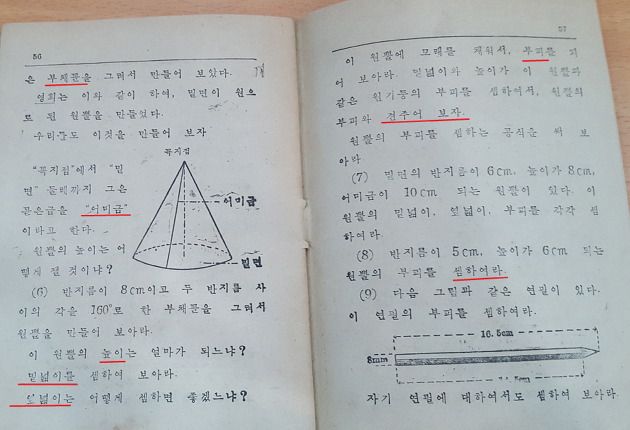 56
은 부채꼴을 그려서 만들어 보았다.
영희는 이와 같이 하여, 밑면이 원으
로 된 원뿔을 만들었다.
우리들도 이것을 만들어 보자
꼭지점
"꼭지점"에서 "밑
면" 둘레까지 그은
곧은금을 "어미금"
이라고 한다.
원뿔의 높이는 어
떻게 잴 것이냐?
어미금
밑면
(6) 반지름이 8cm이고 두 반지름 사
이의 각을 160°로 한 부채꼴을 그려서
원뿔을 만들어 보아라.
이 원뿔의 높이는 얼마가 되느냐?
밑넓이를 셈하여 보아라.
옆넓이는 어떻게 셈하면 좋겠느냐?
57
이 원뿔에 모래를 채워서, 부피를 재
어 보아라. 밑넓이와 높이가 이 원뿔과
같은 원기둥의 부피를 셈하여서, 원뿔의
부피와 견주어 보자.
원뿔의 부피를 셈하는 공식을 써 보
아라
(7) 밑면의 반지름이 6cm, 높이가 8cm,
어미금이 10cm 되는 원뿔이 있다. 이
원뿔의 밑넓이, 옆넓이, 부피를 각각 셈
하여라.
(8) 반지름이 5cm, 높이가 6cm 되는
원뿔의 부피를 셈하여라.
(9) 다음 그림과 같은 연필이 있다.
이 연필의 부피를 셈하여라.
16.5cm
8mm
자기 연필에 대하여서도 셈하여 보아라.